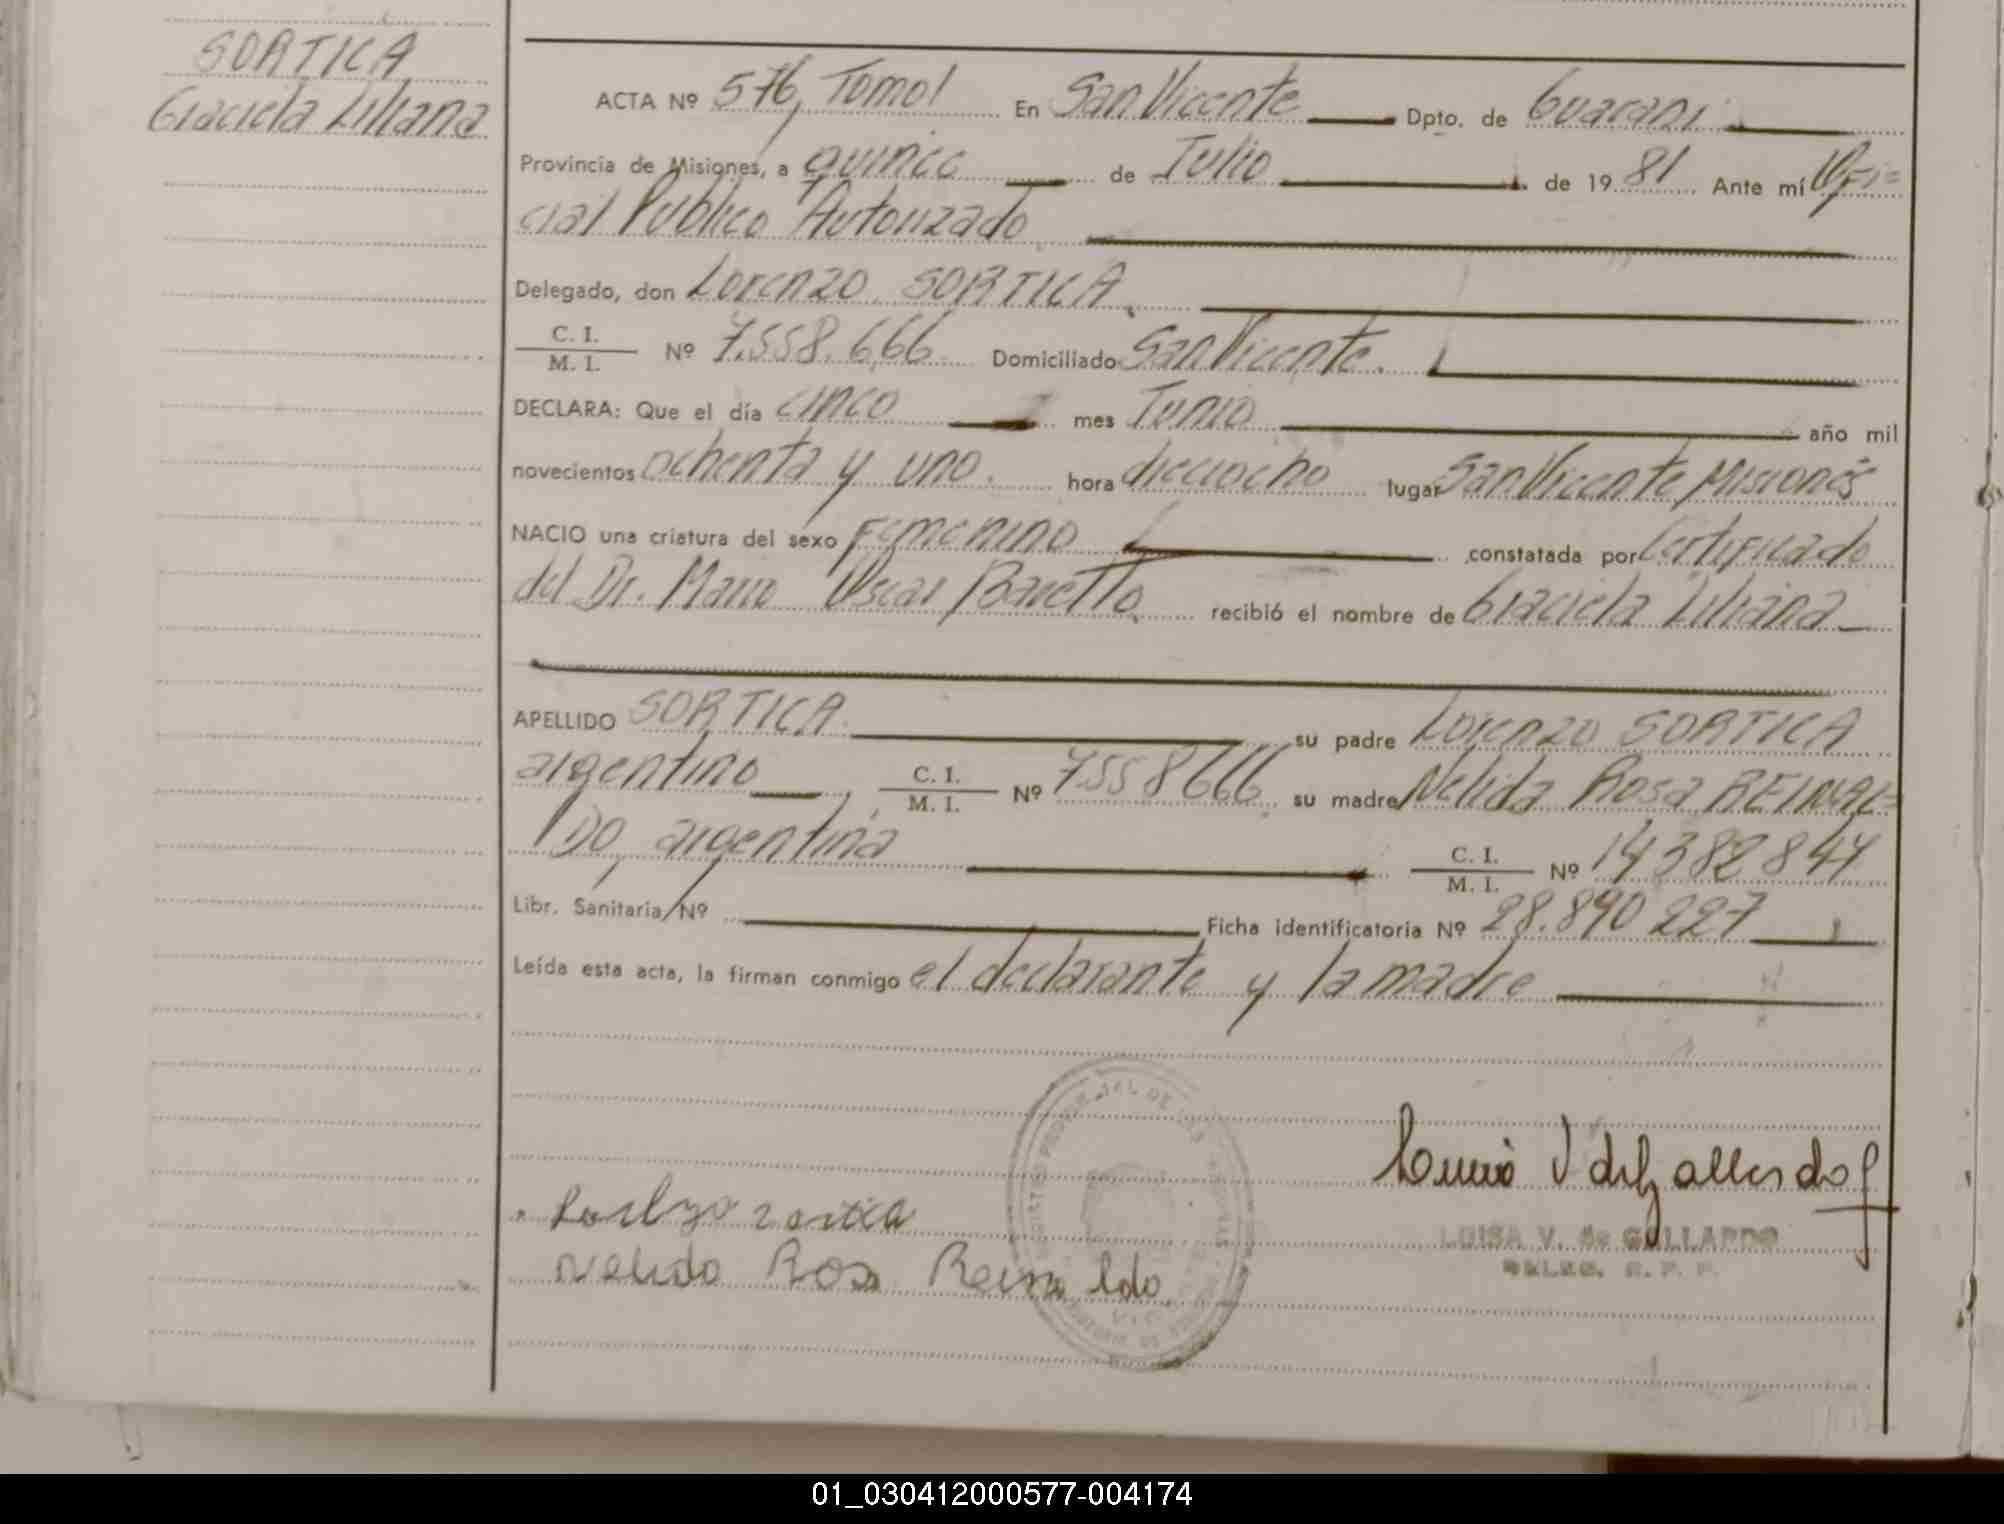 SORTICA
Graciela Liliana
ACTA Nº 576, Tomo I En San Vicente Dpto. de Guarani
Provincia de Misiones, a quince de Julio de 19 81 Ante mí Ofi=
cial Publico Autorizado
Delegado, don Lorenzo SORTICA.
C. I.
M. I. Nº 7.558.666 Domiciliado San Vicente.
DECLARA: Que el día cinco mes Junio año mil
novecientos ochenta y uno. hora dieciocho lugar San Vicente, Misiones
NACIO una criatura del sexo Femenino constatada por Certificado
del Dr. Mario Oscar Baretto. recibió el nombre de Graciela Liliana
APELLIDO SORTICA. su padre Lorenzo SORTICA
argentino, C. I.
M. I. Nº 7558666, su madre Nelida Rosa REINAL=
DO, argentina C. I.
M. I. Nº 14382844
Libr. Sanitaria Nº Ficha identificatoria Nº 28.890 227
Leída esta acta, la firman conmigo el declarante y la madre
Nelida Rosa Reinaldo
LUISA V. de GALLARDO
DELEG. R. P. P.
01_030412000577-004174